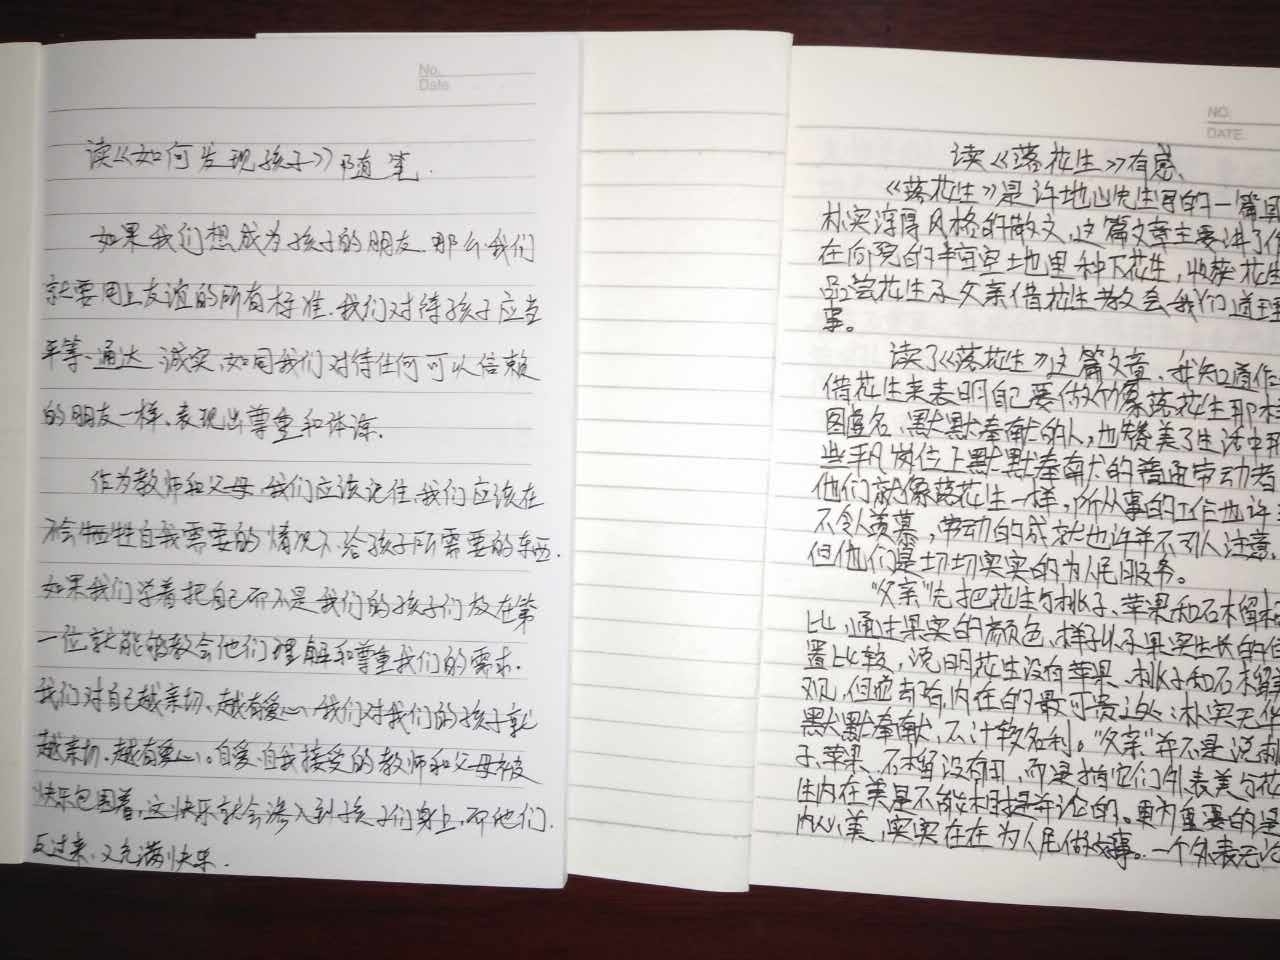 No.
Date
读《如何发现孩子》随笔.
如果我们想成为孩子的朋友.那么我们
就要用上友谊的所有标准.我们对待孩子应当
平等、通达、诚实,如同我们对待任何可以信赖
的朋友一样、表现出尊重和体谅.
作为教师和父母,我们应该记住,我们应该在
不会牺牲自我需要的情况下给孩子所需要的东西.
如果我们学着把自己而不是我们的孩子们放在第
一位就能够教会他们理解和尊重我们的需求.
我们对自己越亲切、越有爱心,我们对我们的孩子就
越亲切.越有爱心。自爱、自我接受的教师和父母被
快乐包围着,这快乐就会渗入到孩子们身上,而他们.
反过来、又充满快乐.
NO.
DATE
读《落花生》有感、
《落花生》是许地山先生写的一篇具
朴实淳厚风格的散文,这篇文章主要讲了作
在后院的半亩空地里种下花生,收获花生
品尝花生及父亲借花生教会我们道理
事。
读了《落花生》这篇文章、我知道作
借花生来表明自己要做个像落花生那样
图虚名、默默奉献的人,也赞美了生活中那
些平凡岗位上默默奉献的普通劳动者
他们就像落花生一样,所从事的工作也许
不令人羡慕,劳动的成就也许并不引人注意,
但他们是切切实实的为人民服务。
“父亲”先把花生与桃子、苹果和石榴相
比,通过果实的颜色、样子以及果实生长的位
置比较,说明花生没有苹果、桃子和石榴美
观,但应当有内在的最可贵之处:朴实无华
默默奉献,不计较名利。“父亲”并不是说桃
子、苹果、石榴没有用,而是指它们外表美与花
生内在美是不能相提并论的。更为重要的是
内心美,实实在在为人民做事。一个外表无论